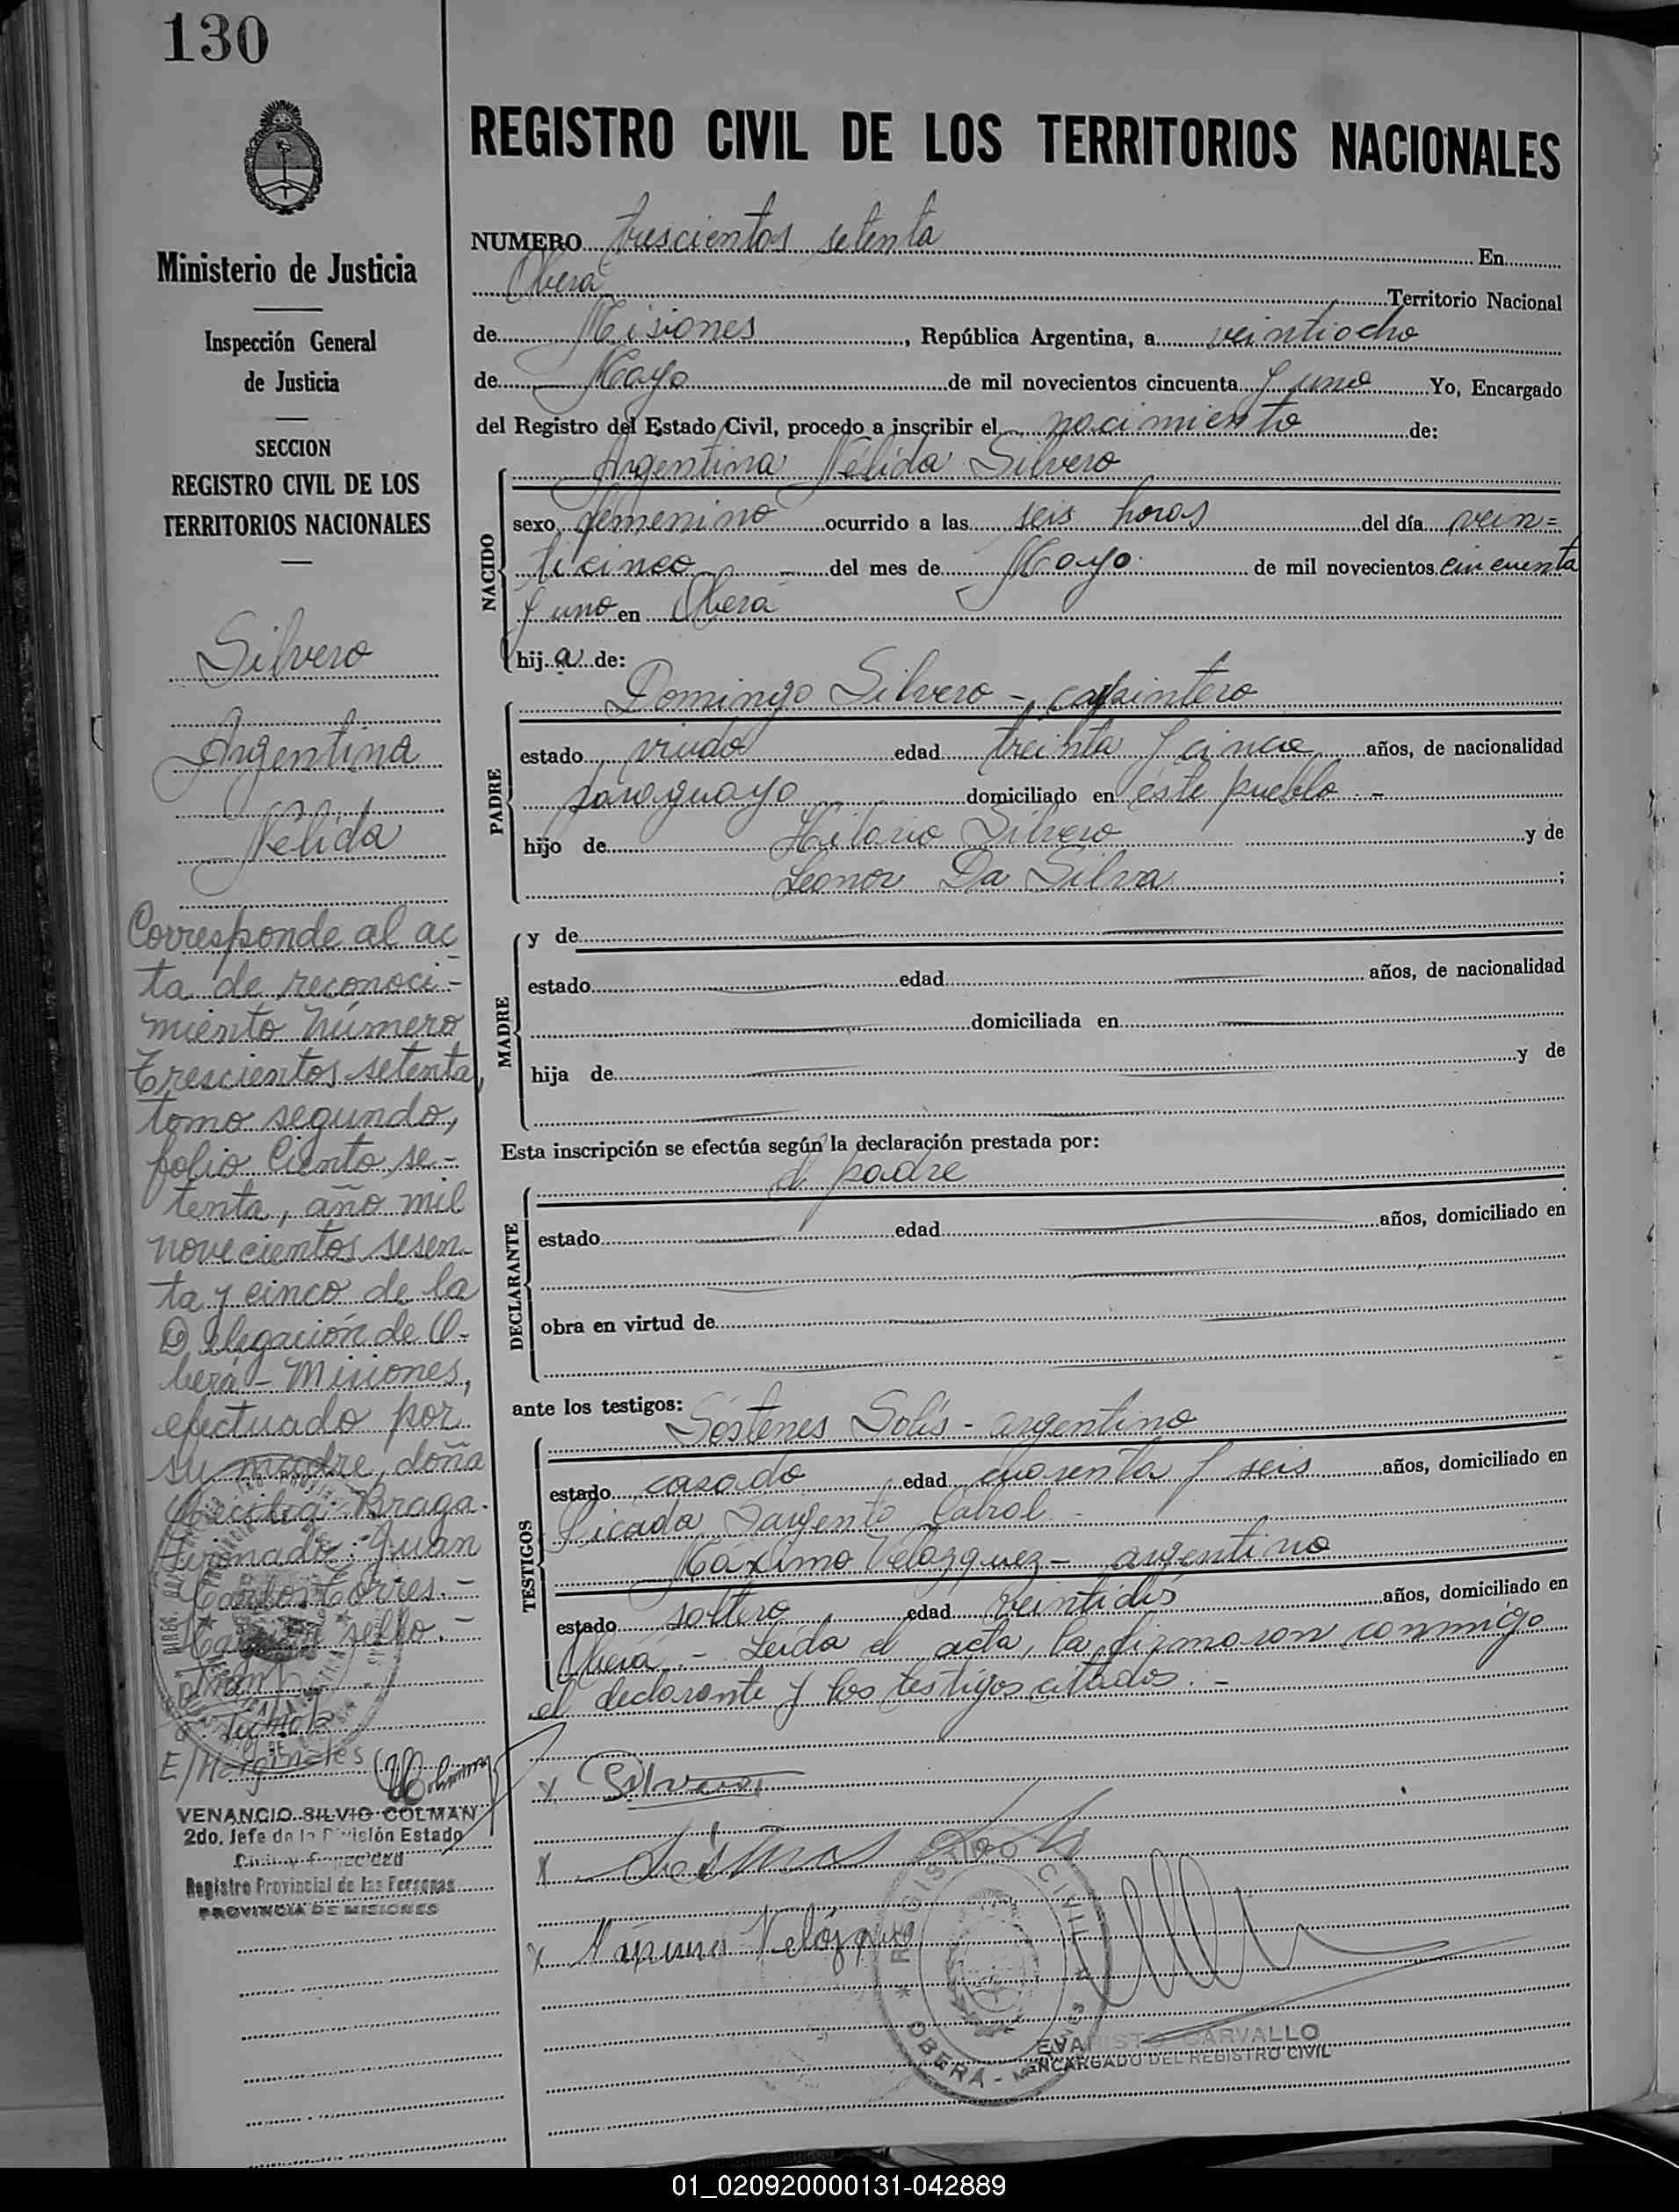 130
Ministerio de Justicia
Inspección General
de Justicia
SECCION
REGISTRO CIVIL DE LOS
TERRITORIOS NACIONALES
Silvero
Argentina
Nélida
Corresponde al ac
ta de reconoci-
miento número
Trescientos setenta,
tomo segundo,
folio Ciento se-
tenta, año mil
novecientos sesen-
ta y cinco de la
Delegación de O-
berá - Misiones,
efectuado por
su madre, doña
Braga.
Firmado: Juan
Carlos Torres.-
sello.-
E/Marginales
VENANCIO SILVIO COLMAN
2do. Jefe de la División Estado
Civil y Capacidad
Registro Provincial de las Personas
PROVINCIA DE MISIONES
REGISTRO CIVIL DE LOS TERRITORIOS NACIONALES
NUMERO trescientos setenta En
Oberá Territorio Nacional
de Misiones, República Argentina, a veintiocho
de Mayo de mil novecientos cincuenta y uno Yo, Encargado
del Registro del Estado Civil, procedo a inscribir el nacimiento de:
NACIDO
Argentina Nélida Silvero
sexo femenino ocurrido a las seis horas del día vein=
ticinco del mes de Mayo de mil novecientos cincuenta
y uno en Oberá
hija de:
PADRE
Domingo Silvero - carpintero
estado viudo edad treinta y cinco años, de nacionalidad
paraguayo domiciliado en éste pueblo.-
hijo de Hilario Silvero y de
Leonor Da Silva;
MADRE
y de
estado edad años, de nacionalidad
domiciliada en
hija de y de
Esta inscripción se efectúa según la declaración prestada por:
DECLARANTE
el padre
estado edad años, domiciliado en
obra en virtud de
ante los testigos:
TESTIGOS
Sóstenes Solís - argentino
estado casado edad cuarenta y seis años, domiciliado en
Picada Sargento Cabral.
Máximo Velazquez - argentino
estado soltero edad veintidós años, domiciliado en
Oberá.- Leída el acta, la firmaron conmigo
el declarante y los testigos citados.-
x Silvero
x
x Máximo Velázquez
REGISTRO CIVIL
OBERÁ - MISIONES
EVARISTO CARVALLO
ENCARGADO DEL REGISTRO CIVIL
01_020920000131-042889